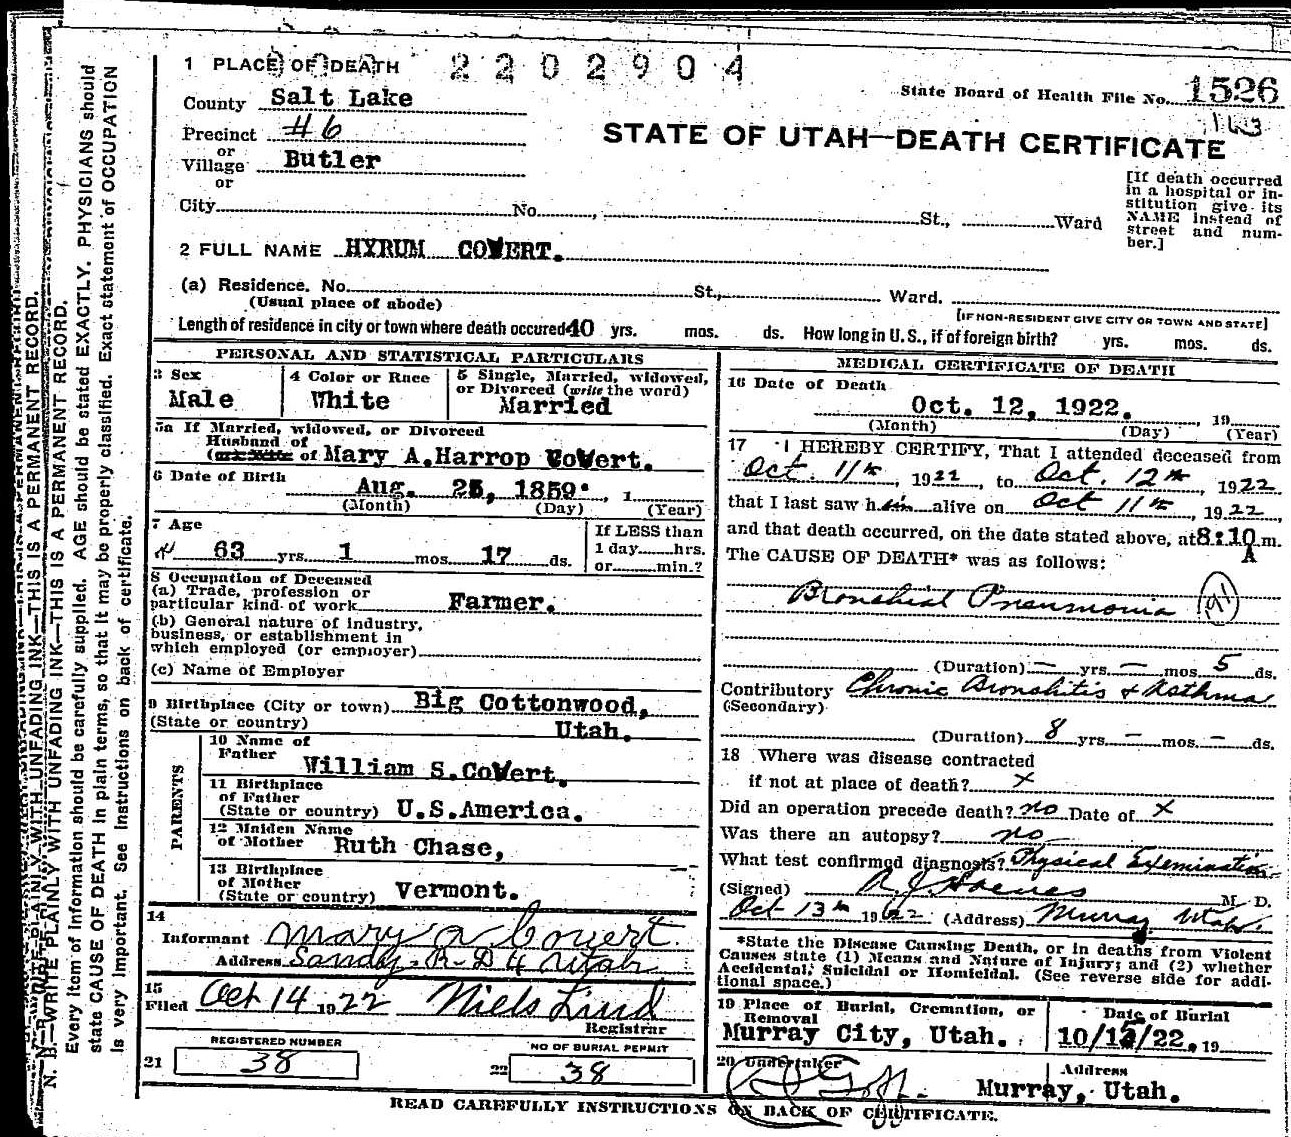 1 PLACE OF DEATH 2202904
State Board of Health File No. 1526
County Salt Lake
Precinct #6
STATE OF UTAH—DEATH CERTIFICATE
or
Village Butler
or
City No. St., Ward
[If death occurred in a hospital or institution give its NAME instead of street and number.]
2 FULL NAME HYRUM COVERT.
(a) Residence. No. St., Ward.
(Usual place of abode) [IF NON-RESIDENT GIVE CITY OR TOWN AND STATE]
Length of residence in city or town where death occured 40 yrs. mos. ds. How long in U.S., if of foreign birth? yrs. mos. ds.
PERSONAL AND STATISTICAL PARTICULARS
3 Sex Male
4 Color or Race White
5 Single, Married, widowed, or Divorced (write the word) Married
5a If Married, widowed, or Divorced
Husband of
(or Wife of Mary A.Harrop Covert.
6 Date of Birth Aug. 25, 1859. 1
(Month) (Day) (Year)
7 Age 63 yrs. 1 mos. 17 ds.
If LESS than
1 day hrs.
or min.?
8 Occupation of Deceased
(a) Trade, profession or
particular kind of work Farmer.
(b) General nature of industry,
business, or establishment in
which employed (or employer)
(c) Name of Employer
9 Birthplace (City or town) Big Cottonwood,
(State or country) Utah.
PARENTS
10 Name of
Father William S.Covert.
11 Birthplace
of Father
(State or country) U.S.America.
12 Maiden Name
of Mother Ruth Chase,
13 Birthplace
of Mother
(State or country) Vermont.
14
Informant Mary A Covert
Address Sandy R-D 4 Utah
15
Filed Oct 14 1922 Niels Lind
Registrar
REGISTERED NUMBER
21 38
NO OF BURIAL PERMIT
22 38
MEDICAL CERTIFICATE OF DEATH
16 Date of Death
Oct. 12, 1922. 19
(Month) (Day) (Year)
17 I HEREBY CERTIFY, That I attended deceased from
Oct. 11th, 1922, to Oct. 12th, 1922
that I last saw him alive on Oct 11th, 1922,
and that death occurred, on the date stated above, at 8:10 A m.
The CAUSE OF DEATH* was as follows:
Bronchial Pneumonia
(Duration) — yrs — mos 5 ds.
Contributory Chronic Bronchitis & Asthma
(Secondary)
(Duration) 8 yrs — mos — ds.
18 Where was disease contracted
if not at place of death? x
Did an operation precede death? no Date of x
Was there an autopsy? no
What test confirmed diagnosis? Physical Examination
(Signed) M. D.
Oct 13th 1922 (Address) Murray Utah.
*State the Disease Causing Death, or in deaths from Violent
Causes state (1) Means and Nature of Injury; and (2) whether
Accidental, Suicidal or Homicidal. (See reverse side for addi-
tional space.)
19 Place of Burial, Cremation, or
Removal
Murray City, Utah.
Date of Burial
10/15/22. 19
20 Undertaker
Address
Murray, Utah.
READ CAREFULLY INSTRUCTIONS ON BACK OF CERTIFICATE.
N. B.—WRITE PLAINLY WITH UNFADING INK—THIS IS A PERMANENT RECORD.
Every item of information should be carefully supplied. AGE should be stated EXACTLY. PHYSICIANS should
state CAUSE OF DEATH in plain terms, so that it may be properly classified. Exact statement of OCCUPATION
is very important. See instructions on back of certificate.